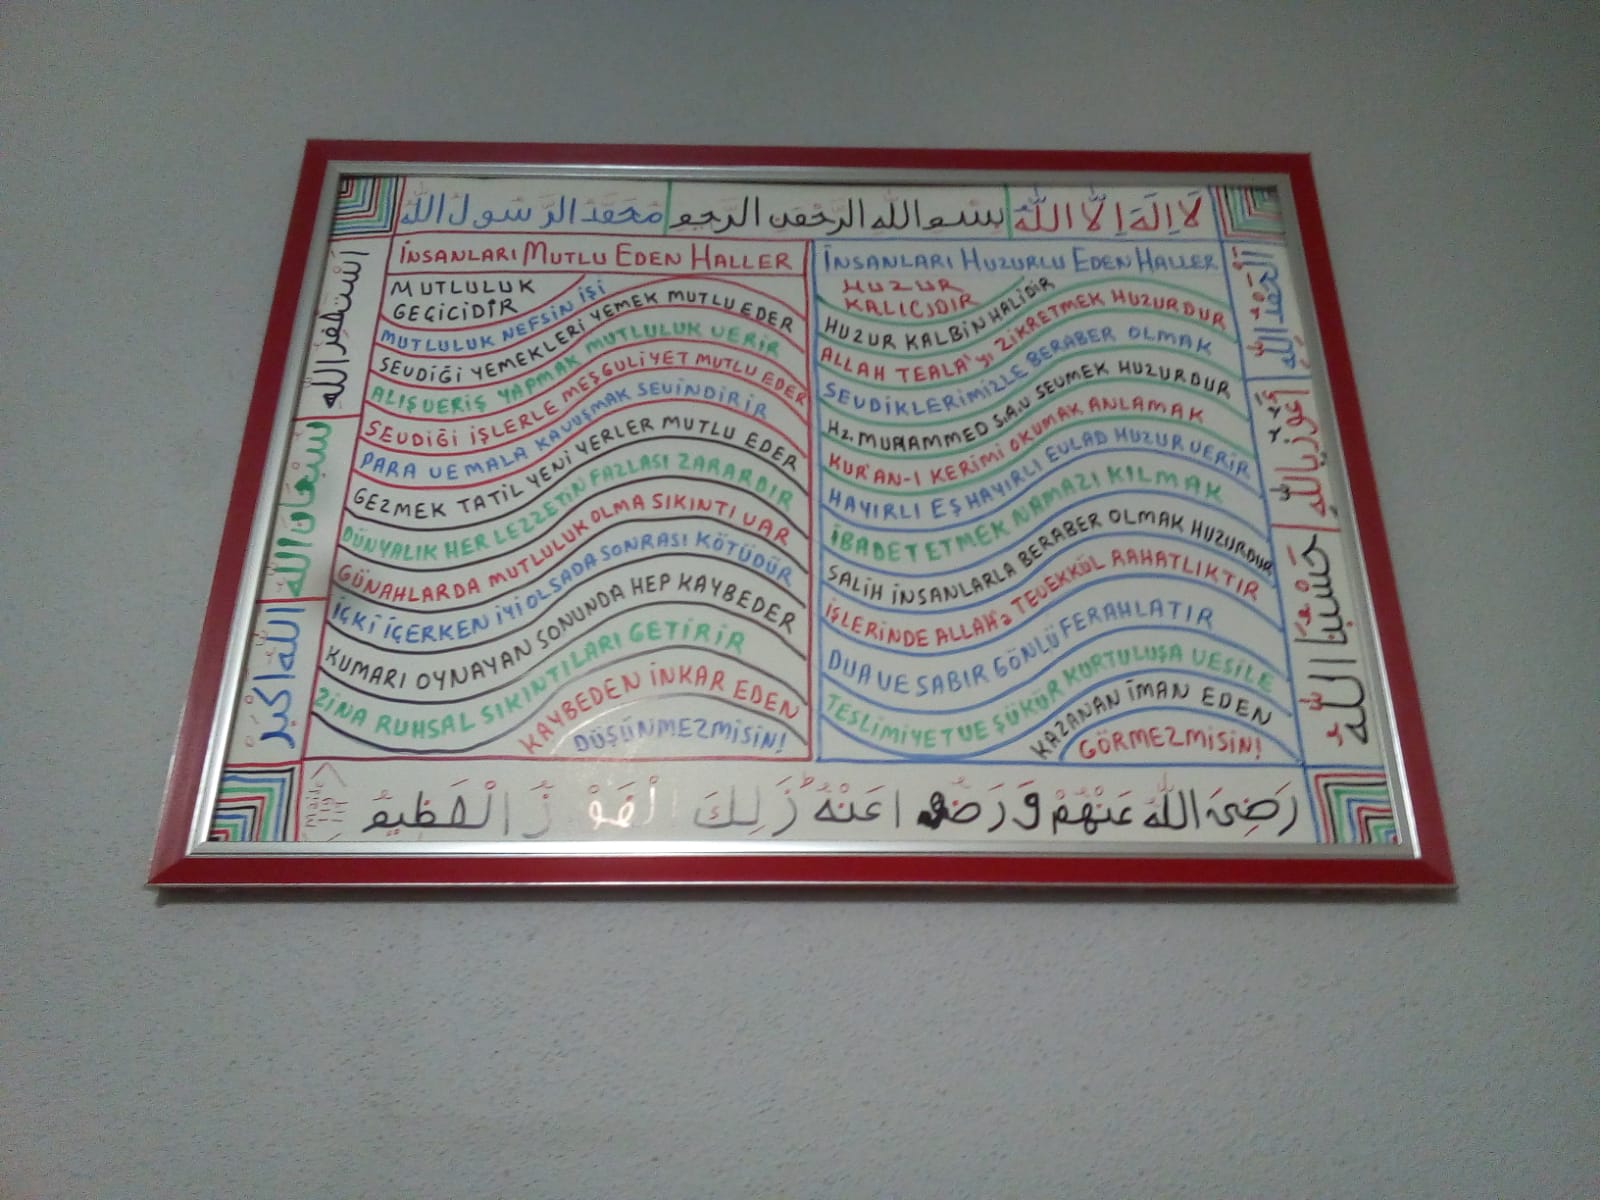 لَا اِلَهَ اِلَّا اللَّهُ
بِسْمِ اللَّهِ الرَّحْمَنِ الرَّحِيمِ
مُحَمَّدُ الرَّسُولُ اللَّهِ
İNSANLARI MUTLU EDEN HALLER
MUTLULUK
GEÇİCİDİR
MUTLULUK NEFSİN İŞİ
SEVDİĞİ YEMEKLERİ YEMEK MUTLU EDER
ALIŞVERİŞ YAPMAK MUTLULUK VERİR
SEVDİĞİ İŞLERLE MEŞGULİYET MUTLU EDER
PARA VE MALA KAVUŞMAK SEVİNDİRİR
GEZMEK TATİL YENİ YERLER MUTLU EDER
DÜNYALIK HER LEZZETİN FAZLASI ZARARDIR
GÜNAHLARDA MUTLULUK OLMA SIKINTI VAR
İÇKİ İÇERKEN İYİ OLSADA SONRASI KÖTÜDÜR
KUMARI OYNAYAN SONUNDA HEP KAYBEDER
ZİNA RUHSAL SIKINTILARI GETİRİR
KAYBEDEN İNKAR EDEN
DÜŞÜNMEZMİSİN!
İNSANLARI HUZURLU EDEN HALLER
HUZUR
KALICIDIR
HUZUR KALBİN HALİDİR
ALLAH TEALA'yı ZİKRETMEK HUZURDUR
SEVDİKLERİMİZLE BERABER OLMAK
HZ. MUHAMMED S.A.V SEVMEK HUZURDUR
KUR'AN-I KERİMİ OKUMAK ANLAMAK
HAYIRLI EŞ HAYIRLI EVLAD HUZUR VERİR
İBADET ETMEK NAMAZI KILMAK
SALİH İNSANLARLA BERABER OLMAK HUZURDUR
İŞLERİNDE ALLAH'a TEVEKKÜL RAHATLIKTIR
DUA VE SABIR GÖNLÜ FERAHLATIR
TESLİMİYET VE ŞÜKÜR KURTULUŞA VESİLE
KAZANAN İMAN EDEN
GÖRMEZMİSİN!
اَسْتَغْفِرُ اللَّه
سُبْحَانَ اللَّهِ
اَللَّهُ اَكْبَرْ
اَلْحَمْدُ لِلَّهِ
اَعُوذُ بِاللَّهِ
حَسْبُنَا اللَّهُ
رَضِىَ اللَّهُ عَنْهُمْ وَ رَضُوا عَنْهُ ذَلِكَ الْفَوْزُ الْعَظِيمُ
Maide
119